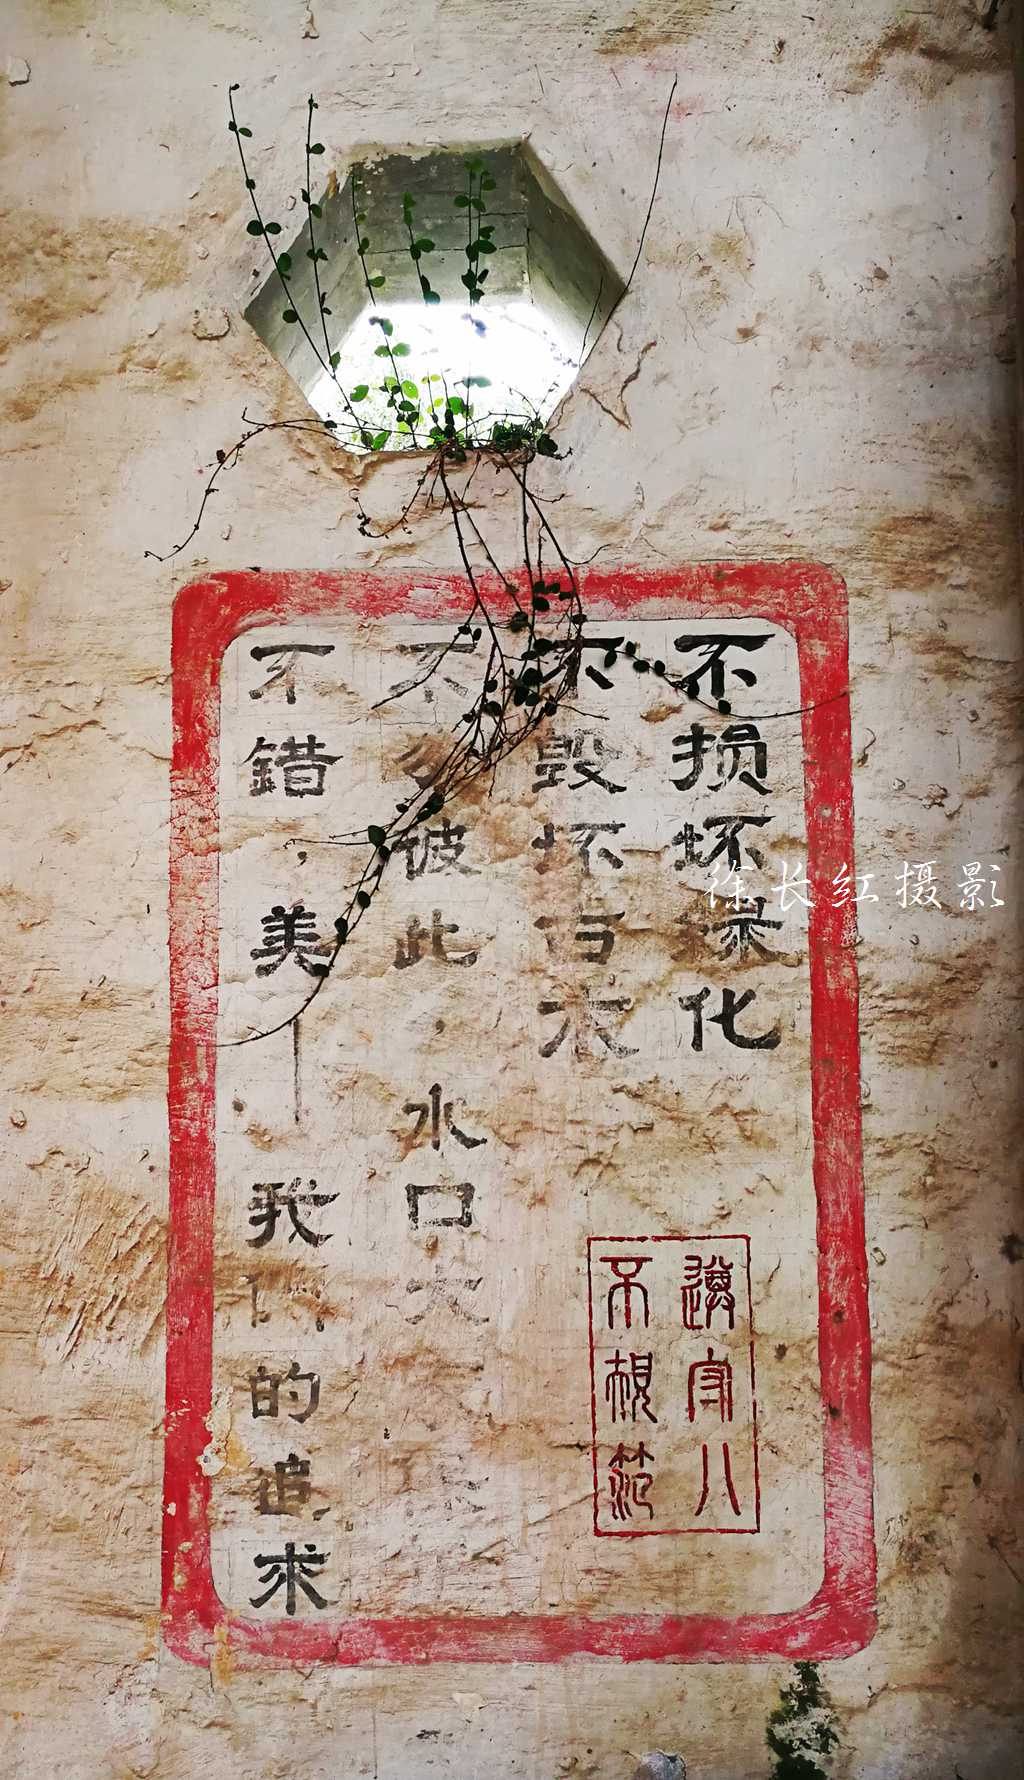 不损坏绿化
不毁坏古木
不分彼此，水口大
不错，美—我们的追求
遵守八
不规范
徐长红摄影